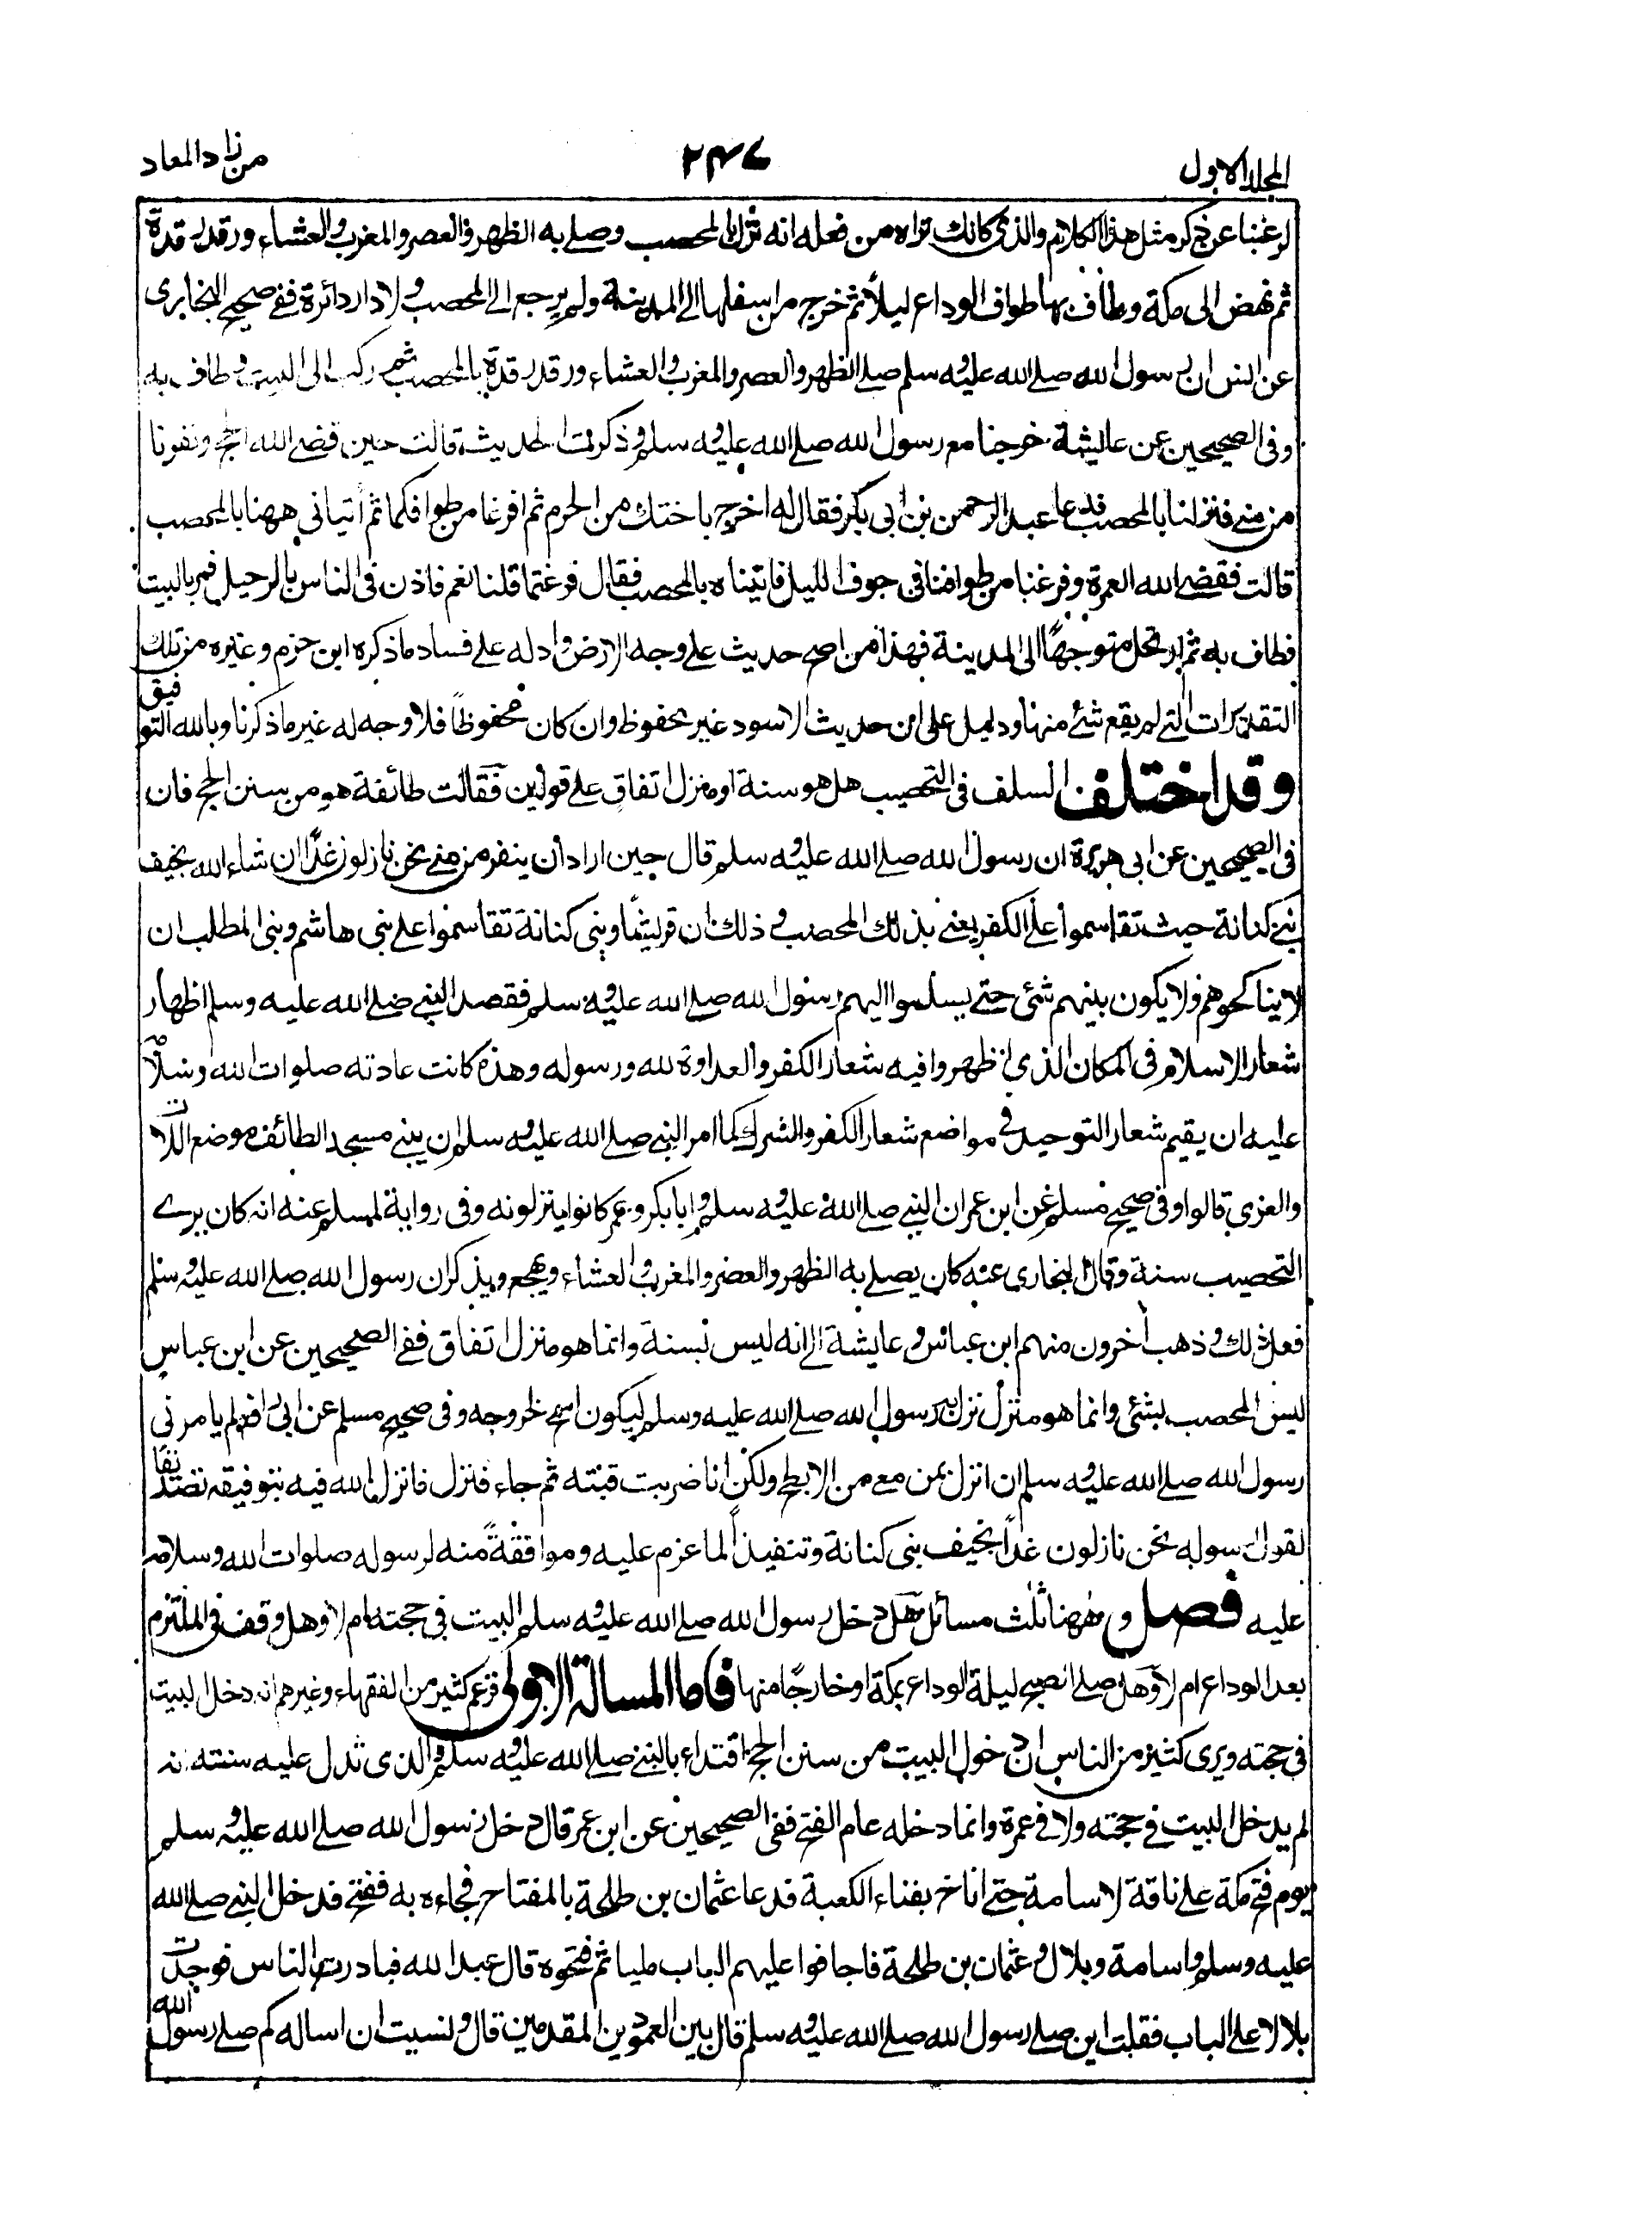 المجلد الاول
٢٤٧
من زاد المعاد
لرغبنا عن ذكر مثل هذا الكلام والذي كانك تراه من فعله انه نزل بالمحصب وصلے به الظهر والعصر والمغرب والعشاء ورقد رقدة
ثم نهض الى مكة وطاف بها طواف الوداع ليلاً ثم خرج من اسفلها الى المدينة ولم يرجع الى المحصب ولا دار دائرة ففے صحيح البخاري
عن انس ان رسول الله صلے الله عليه وسلم صلے الظهر والعصر والمغرب والعشاء ورقد رقدة بالمحصب ثم ركب الى البيت وطاف به
وفى الصحيحين عن عايشة خرجنا مع رسول الله صلے الله عليه وسلم وذكرت الحديث قالت حين قضے الله الحج ونفرنا
من منے فنزلنا بالمحصب فدعا عبد الرحمن بن ابى بكر فقال له اخرج باختك من الحرم ثم افرغا من طوافكما ثم أتيانى ههنا بالمحصب
قالت فقضے الله العمرة وفرغنا من طوافنا فى جوف الليل فاتيناه بالمحصب فقال فرغتما قلنا نعم فاذن فى الناس بالرحيل فمر بالبيت
فطاف به ثم ارتحل متوجهًا الى المدينة فهذا من اصح حديث على وجه الارض وادله على فساد ما ذكره ابن حزم وغيره من تلك
التقديرات التے لم يقع شئ منها ودليل على ان حديث الاسود غير محفوظ وان كان محفوظاً فلا وجه له غير ما ذكرنا وبالله التوفيق
وقد اختلف السلف فى التحصيب هل هو سنة او منزل اتفاق على قولين فقالت طائفة هو من سنن الحج فان
فى الصحيحين عن ابى هريرة ان رسول الله صلے الله عليه وسلم قال حين اراد ان ينفر من منے نحن نازلون غدًا ان شاء الله بخيف
بنے كنانة حيث تقاسموا على الكفر يعنے بذلك المحصب وذلك ان قريشًا وبنى كنانة تقاسموا على بنى هاشم وبنى المطلب ان
لا يناكحوهم ولا يكون بينهم شئ حتے يسلموا اليهم رسول الله صلے الله عليه وسلم فقصد النبے صلے الله عليه وسلم اظهار
شعار الاسلام فى المكان الذي اظهروا فيه شعار الكفر والعداوة لله ورسوله وهذه كانت عادته صلوات الله وسلامه
عليه ان يقيم شعار التوحيد فى مواضع شعار الكفر والشرك كما امر النبے صلے الله عليه وسلم ان يبنے مسجد الطائف موضع اللات
والعزي قالوا وفى صحيح مسلم عن ابن عمر ان النبے صلے الله عليه وسلم وابا بكر وعمر كانوا ينزلونه وفى رواية لمسلم عنه انه كان يرے
التحصيب سنة وقال البخارى عنه كان يصلے به الظهر والعصر والمغرب والعشاء ويهجع ويذكر ان رسول الله صلے الله عليه وسلم
فعل ذلك وذهب أخرون منهم ابن عباس وعايشة الى انه ليس بسنة وانما هو منزل اتفاق ففے الصحيحين عن ابن عباس
ليس المحصب بشئ وانما هو منزل نزل به رسول الله صلے الله عليه وسلم ليكون اسمح لخروجه وفى صحيح مسلم عن ابى رافع لم يامرنى
رسول الله صلے الله عليه وسلم ان انزل بمن مع من الابطح ولكن انا ضربت قبته ثم جاء فنزل فانزل الله فيه بتوفيقه تصديقا
لقول رسوله نحن نازلون غدًا بخيف بنى كنانة وتنفيذاً لما عزم عليه وموافقةً منه لرسوله صلوات الله وسلامه
عليه فصل وههنا ثلث مسائل هل دخل رسول الله صلے الله عليه وسلم البيت فى حجته ام لا وهل وقف فى الملتزم
بعد الوداع ام لا وهل صلے الصبح ليلة الوداع بمكة او خارجًا منها فاما المسالة الاولى فزعم كثير من الفقهاء وغيرهم انه دخل البيت
فى حجته ويرى كثير من الناس ان دخول البيت من سنن الحج اقتداء بالنبے صلے الله عليه وسلم والذى تدل عليه سنته انه
لم يدخل البيت فى حجته ولا فى عمرة وانما دخله عام الفتح ففى الصحيحين عن ابن عمر قال دخل رسول الله صلے الله عليه وسلم
يوم فتح مكة على ناقة لاسامة حتے اناخ بفناء الكعبة فدعا عثمان بن طلحة بالمفتاح فجاءه به ففتح فدخل النبے صلے الله
عليه وسلم واسامة وبلال وعثمان بن طلحة فاجافوا عليهم الباب مليا ثم فتحوه قال عبد الله فبادرت الناس فوجدت
بلالا على الباب فقلت اين صلے رسول الله صلے الله عليه وسلم قال بين العمودين المقدمين قال ونسيت ان اساله كم صلے رسول الله